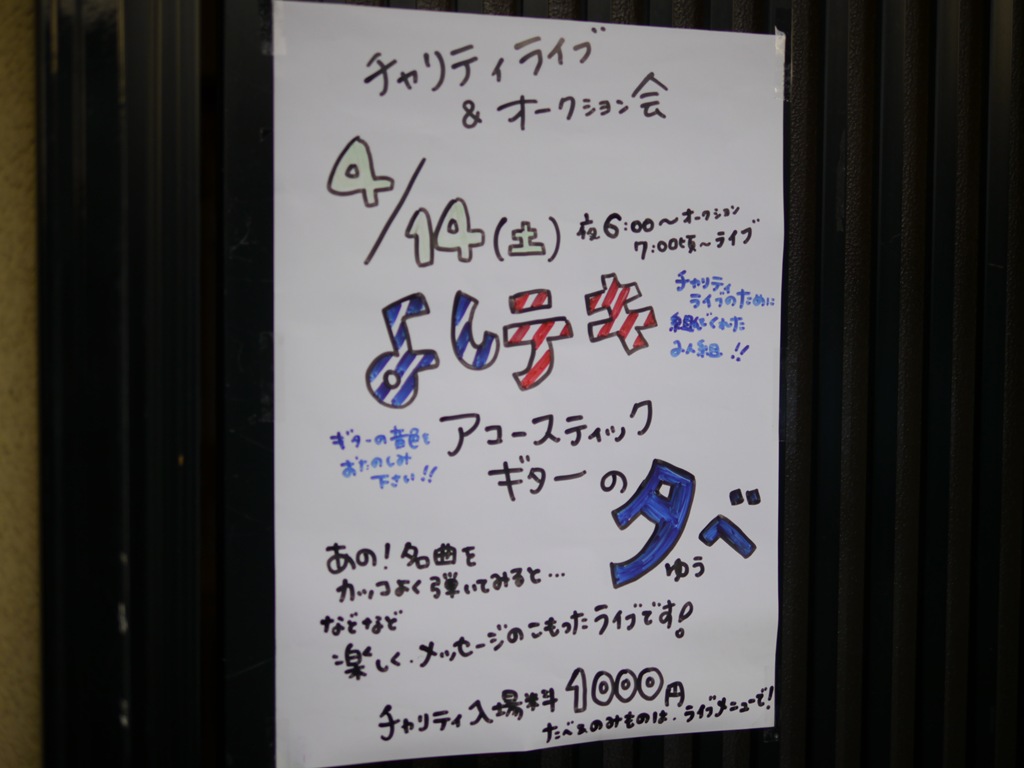 チャリティライブ
& オークション会
4/14(土)
夜6:00〜オークション
7:00頃〜ライブ
よしテキ
チャリティ
ライブのために
組んでくれた
2人組!!
アコースティック
ギターの
夕べ
ゆう
ギターの音色を
おたのしみ
下さい!!
あの!名曲を
カッコよく弾いてみると…
などなど
楽しく、メッセージのこもったライブです!
チャリティ入場料 1000円
たべ&のみものは、ライブメニューで!